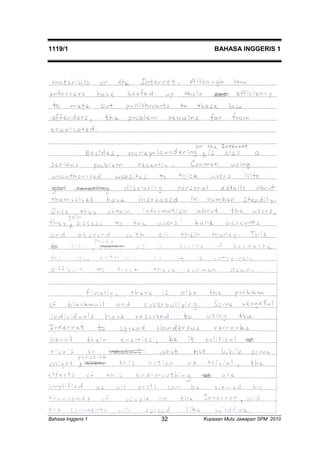 1119/1 BAHASA INGGERIS 1
materials on the Internet. Although law
enforcers have beefed up their efficiency
to mete out punishments to these law
offenders, the problem remains far from
eradicated.
on the Internet
Besides, money-laundering is also a
serious problem recently. Conmen using
unauthorised websites to trick users into
disclosing personal details about
themselves have increased in number steadily.
Once they obtain information about the users,
gain
they access to the users' bank accounts
and abscond with all their money. This
poses
as a source of headache
for law enforcers as it is extremely
difficult to track these conmen down.
Finally, there is also the problem
of blackmail and cyberbullying. Some vengeful
individuals have resorted to using the
Internet to spread slanderous remarks
about their enemies, be it political
rivals or what not. While some
perceive
might this action as trivial, the
effects of this badmouthing are
amplified as all posts can be viewed by
thousands of people on the Internet, and
the comments will spread like wildfire.
Bahasa Inggeris 1 32 Kupasan Mutu Jawapan SPM 2010